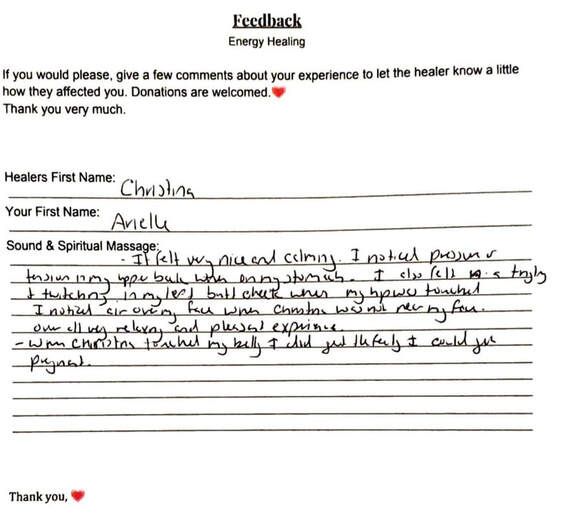 Feedback
Energy Healing
If you would please, give a few comments about your experience to let the healer know a little
how they affected you. Donations are welcomed.❤️
Thank you very much.
Healers First Name: Christina
Your First Name: Arielle
Sound & Spiritual Massage:
- It felt very nice and calming. I noticed pressure &
tension in my upper back when on my stomach. I also felt a tingly
& twitching in my left butt cheek when my hip was touched
I noticed air over my face when Christina was not near my face.
over all very relaxing and pleasant experience.
- when Christina touched my belly I did get the feeling I could get
pregnant.
Thank you, ❤️